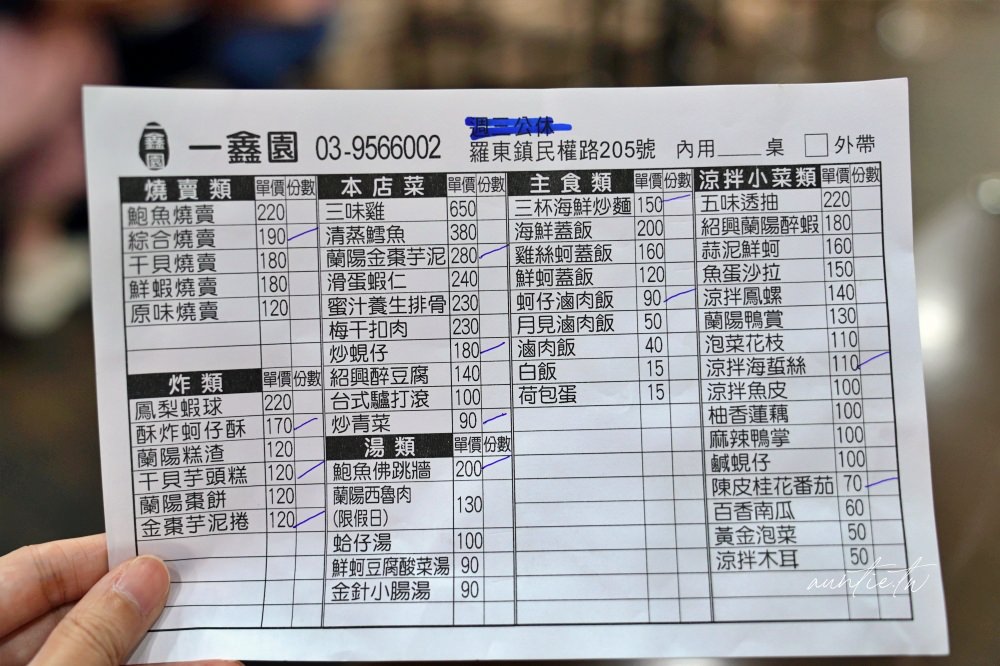 鑫園 一鑫園 03-9566002 週三公休
羅東鎮民權路205號 內用____桌 □外帶
燒賣類 單價 份數
鮑魚燒賣 220
綜合燒賣 190
干貝燒賣 180
鮮蝦燒賣 180
原味燒賣 120
炸類 單價 份數
鳳梨蝦球 220
酥炸蚵仔酥 170
蘭陽糕渣 120
干貝芋頭糕 120
蘭陽棗餅 120
金棗芋泥捲 120
本店菜 單價 份數
三味雞 650
清蒸鱈魚 380
蘭陽金棗芋泥 280
滑蛋蝦仁 240
蜜汁養生排骨 230
梅干扣肉 230
炒蜆仔 180
紹興醉豆腐 140
台式驢打滾 100
炒青菜 90
湯類 單價 份數
鮑魚佛跳牆 200
蘭陽西魯肉
(限假日) 130
蛤仔湯 100
鮮蚵豆腐酸菜湯 90
金針小腸湯 90
主食類 單價 份數
三杯海鮮炒麵 150
海鮮蓋飯 200
雞絲蚵蓋飯 160
鮮蚵蓋飯 120
蚵仔滷肉飯 90
月見滷肉飯 50
滷肉飯 40
白飯 15
荷包蛋 15
涼拌小菜類 單價 份數
五味透抽 220
紹興蘭陽醉蝦 180
蒜泥鮮蚵 160
魚蛋沙拉 150
涼拌鳳螺 140
蘭陽鴨賞 130
泡菜花枝 110
涼拌海蜇絲 110
涼拌魚皮 100
柚香蓮藕 100
麻辣鴨掌 100
鹹蜆仔 100
陳皮桂花番茄 70
百香南瓜 60
黃金泡菜 50
涼拌木耳 50
auntie.tw